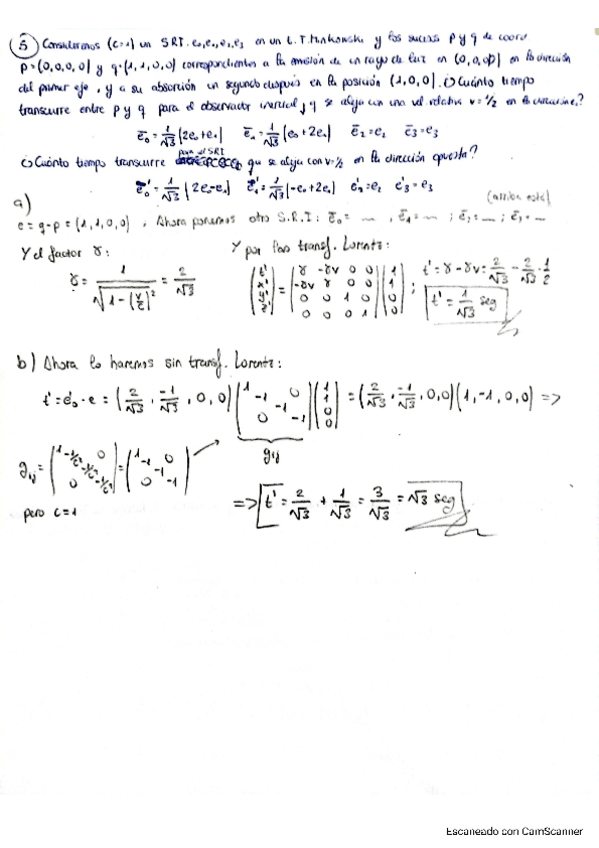 5 Consideremos (c=1) un S.R.I. e₀,e₁,e₂,e₃ en un E.T. Minkowski y los sucesos p y q de coord
p=(0,0,0,0) y q=(1,1,0,0) correspondientes a la emisión de un rayo de luz en (0,0,0) en la dirección
del primer eje, y a su absorción un segundo después en la posición (1,0,0). ¿Cuánto tiempo
transcurre entre p y q para el observador inercial, q se aleja con una vel relativa v=1/2 en la direccion e₁?
ē₀=1/√3(2e₀+e₁) ē₁=1/√3(e₀+2e₁) ē₂=e₂ ē₃=e₃
¿Cuánto tiempo transcurre para el SRI que se aleja con v=1/2 en la dirección opuesta?
ē₀'=1/√3(2e₀-e₁) ē₁'=1/√3(-e₀+2e₁) e₂'=e₂ e₃'=e₃
a) (arriba está)
e=q-p=(1,1,0,0), Ahora ponemos otro S.R.I: ē₀=..., ē₁=...; ē₂=...; ē₃=...
Y el factor γ: Y por las transf. Lorentz:
γ=1/√(1-(v/c)²)=2/√3 (t' x' y' z')=(γ -γv 0 0 -γv γ 0 0 0 0 1 0 0 0 0 1)(1 1 0 0); t'=γ-γv=2/√3-2/√3·1/2
t'=1/√3 seg
b) Ahora lo haremos sin transf. Lorentz:
t'=e₀'·e=(2/√3,-1/√3,0,0)(1 -1 -1 -1 0 0)(1 1 0 0)=(2/√3,-1/√3,0,0)(1,-1,0,0)=>
gij
gij=(1 -1/c² -1/c² -1/c² 0 0)=(1 -1 -1 -1 0 0)
pero c=1
=> t'=2/√3+1/√3=3/√3=√3 seg
Escaneado con CamScanner